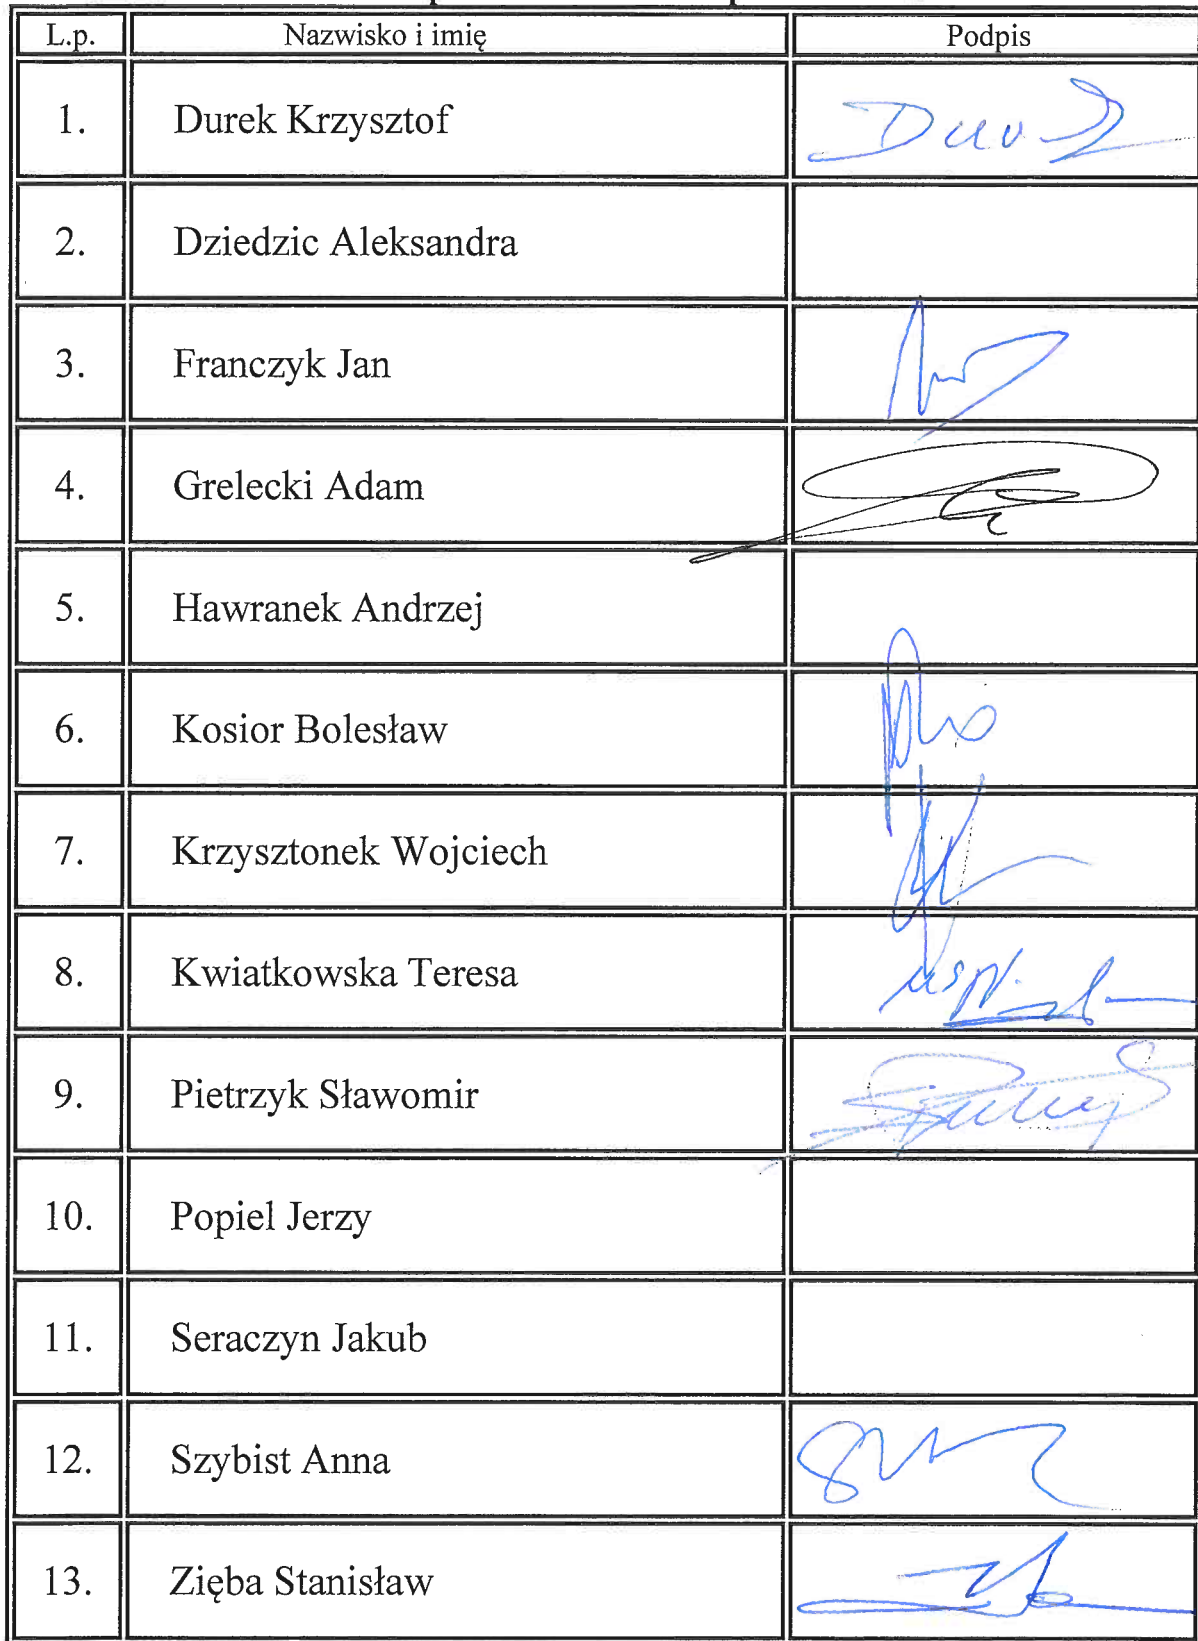 L.p. Nazwisko i imię Podpis
1. Durek Krzysztof
2. Dziedzic Aleksandra
3. Franczyk Jan
4. Grelecki Adam
5. Hawranek Andrzej
6. Kosior Bolesław
7. Krzysztonek Wojciech
8. Kwiatkowska Teresa
9. Pietrzyk Sławomir
10. Popiel Jerzy
11. Seraczyn Jakub
12. Szybist Anna
13. Zięba Stanisław